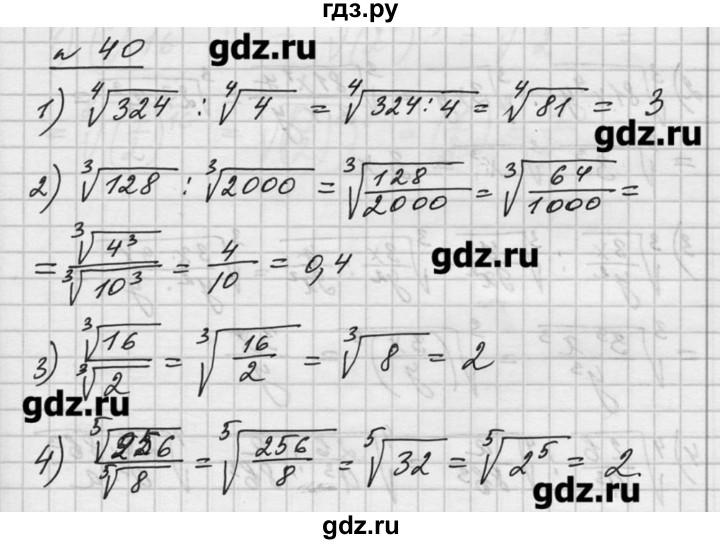 гдз.ру
№ 40
gdz.ru
1) ⁴√324 : ⁴√4 = ⁴√324:4 = ⁴√81 = 3
gdz.ru
2) ³√128 : ³√2000 = ³√(128/2000) = ³√(64/1000) =
= ³√4³ / ³√10³ = 4/10 = 0,4
gdz.ru
3) ³√16 / ³√2 = ³√(16/2) = ³√8 = 2
gdz.ru
4) ⁵√256 / ⁵√8 = ⁵√(256/8) = ⁵√32 = ⁵√2⁵ = 2
gdz.ru
gdz.ru